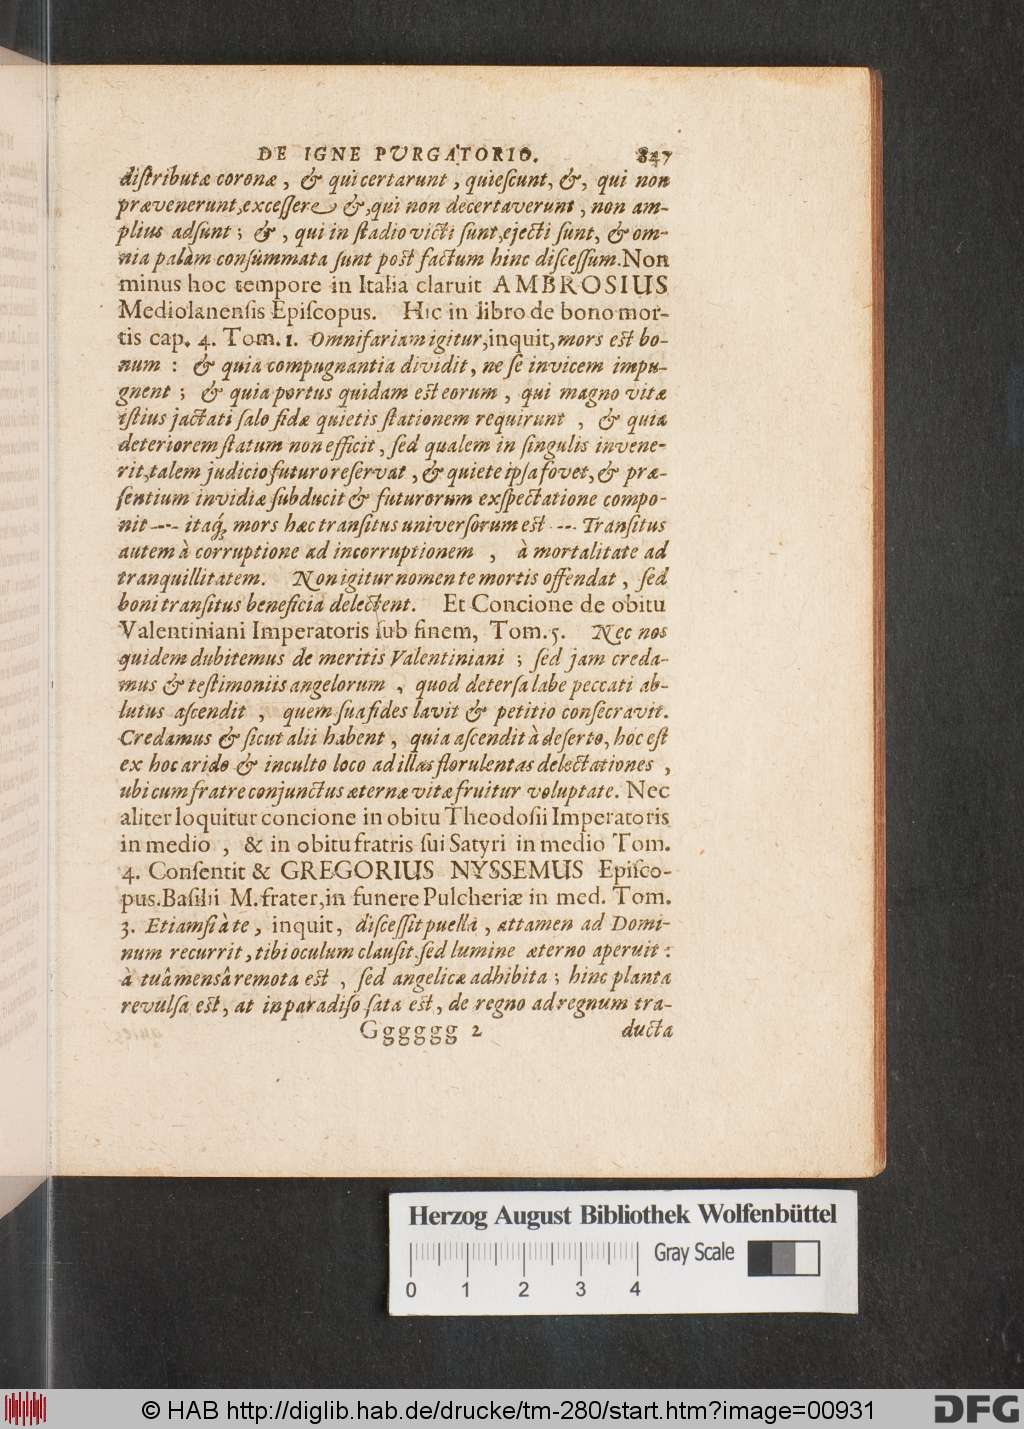 DE IGNE PURGATORIO. 847
diſtributæ coronæ, & qui certarunt, quieſcunt, &, qui non
prævenerunt, exceſſere &, qui non decertaverunt, non am-
plius adſunt; &, qui in ſtadio victi ſunt, ejecti ſunt, & om-
nia palàm conſummata ſunt poſt factum hinc diſceſſum. Non
minus hoc tempore in Italia claruit AMBROSIUS
Mediolanenſis Epiſcopus. Hic in libro de bono mor-
tis cap. 4. Tom. 1. Omnifariam igitur, inquit, mors eſt bo-
num : & quia compugnantia dividit, ne ſe invicem impu-
gnent ; & quia portus quidam eſt eorum, qui magno vitæ
iſtius jactati ſalo fidæ quietis ſtationem requirunt, & quia
deteriorem ſtatum non efficit, ſed qualem in ſingulis invene-
rit, talem judicio futuro reſervat, & quiete ipſa fovet, & præ-
ſentium invidiæ ſubducit & futurorum exſpectatione compo-
nit --- itaq́; mors hæc tranſitus univerſorum eſt --- Tranſitus
autem à corruptione ad incorruptionem, à mortalitate ad
tranquillitatem. Non igitur nomen te mortis offendat, ſed
boni tranſitus beneficia delectent. Et Concione de obitu
Valentiniani Imperatoris ſub finem, Tom. 5. Nec nos
quidem dubitemus de meritis Valentiniani ; ſed jam creda-
mus & teſtimoniis angelorum, quod deterſa labe peccati ab-
lutus aſcendit, quem ſua fides lavit & petitio conſecravit.
Credamus & ſicut alii habent, quia aſcendit à deſerto, hoc eſt
ex hoc arido & inculto loco ad illas florulentas delectationes,
ubi cum fratre conjunctus æternæ vitæ fruitur voluptate. Nec
aliter loquitur concione in obitu Theodoſii Imperatoris
in medio, & in obitu fratris ſui Satyri in medio Tom.
4. Conſentit & GREGORIUS NYSSEMUS Epiſco-
pus. Baſilii M. frater, in funere Pulcheriæ in med. Tom.
3. Etiamſi à te, inquit, diſceſſit puella, attamen ad Domi-
num recurrit, tibi oculum clauſit, ſed lumine æterno aperuit :
à tuâ mensâ remota eſt, ſed angelicæ adhibita ; hinc planta
revulſa eſt, at in paradiſo ſata eſt, de regno ad regnum tra-
Gggggg 2 ducta
Herzog August Bibliothek Wolfenbüttel
Gray Scale
0 1 2 3 4
© HAB http://diglib.hab.de/drucke/tm-280/start.htm?image=00931
DFG